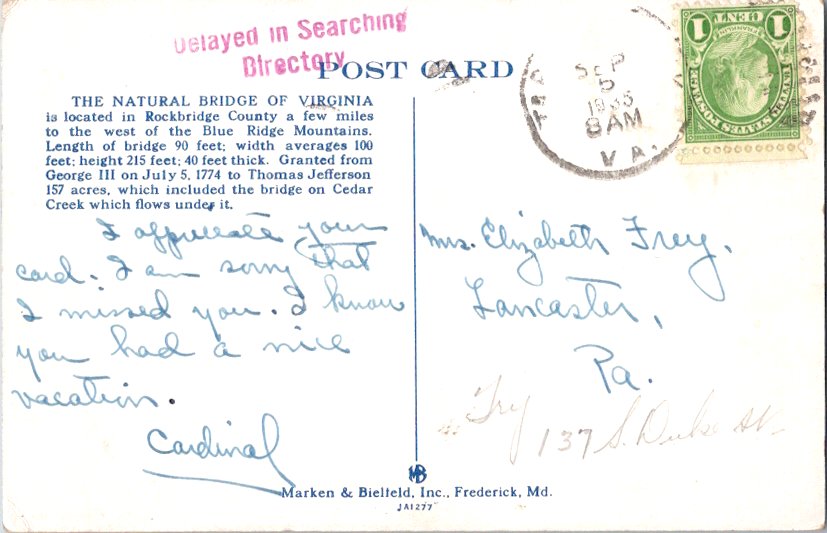 Delayed in Searching
Directory
POST CARD
SEP
5
1935
8 AM
VA.
1 CENT 1
THE NATURAL BRIDGE OF VIRGINIA
is located in Rockbridge County a few miles
to the west of the Blue Ridge Mountains.
Length of bridge 90 feet; width averages 100
feet; height 215 feet; 40 feet thick. Granted from
George III on July 5, 1774 to Thomas Jefferson
157 acres, which included the bridge on Cedar
Creek which flows under it.
I appreciate your
card. I am sorry that
I missed you. I know
you had a nice
vacation.
Cardinal
Mrs. Elizabeth Frey,
Lancaster,
Pa.
Try
137 S. Duke St
MB
Marken & Bielfeld, Inc., Frederick, Md.
JA1277